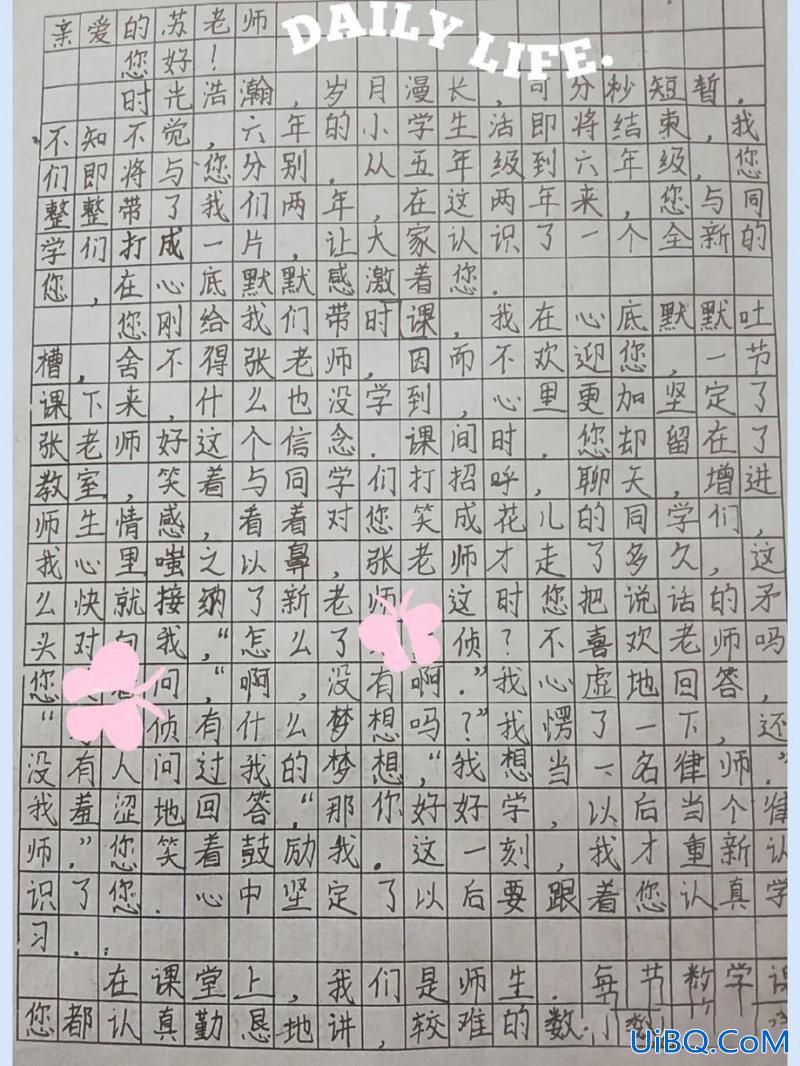 亲爱的苏老师
DAILY LIFE.
您好!
时光浩瀚,岁月漫长,可分秒短暂.
不知不觉,六年的小学生活即将结束,我
们即将与您分别.从五年级到六年级,您
整整带了我们两年,在这两年来,您与同
学们打成一片,让大家认识了一个全新的
您,在心底默默感激着您.
您刚给我们带时课,我在心底默默吐
槽,舍不得张老师,因而不欢迎您,一节
课下来,什么也没学到,心里更加坚定了
张老师好这个信念.课间时,您却留在了
教室,笑着与同学们打招呼,聊天,增进
师生情感,看着对您笑成花儿的同学们,
我心里嗤之以鼻,张老师才走了多久,这
么快就接纳了新老师 这时您把说话的矛
头对向我,“怎么了 侦?不喜欢老师吗
您 问,“啊,没有啊.”我心虚地回答,
“ 侦有什么梦想吗?”我愣了一下,还
没有人问过我的梦想,“我想当一名律师.”
我羞涩地回答,“那你好好学,以后当个律
师.”您笑着鼓励我.这一刻,我才重新认
识了您.心中坚定了以后要跟着您认真学
习..
在课堂上,我们是师生.每节数学课
您都认真勤恳地讲,较难的数
UiBQ.CoM